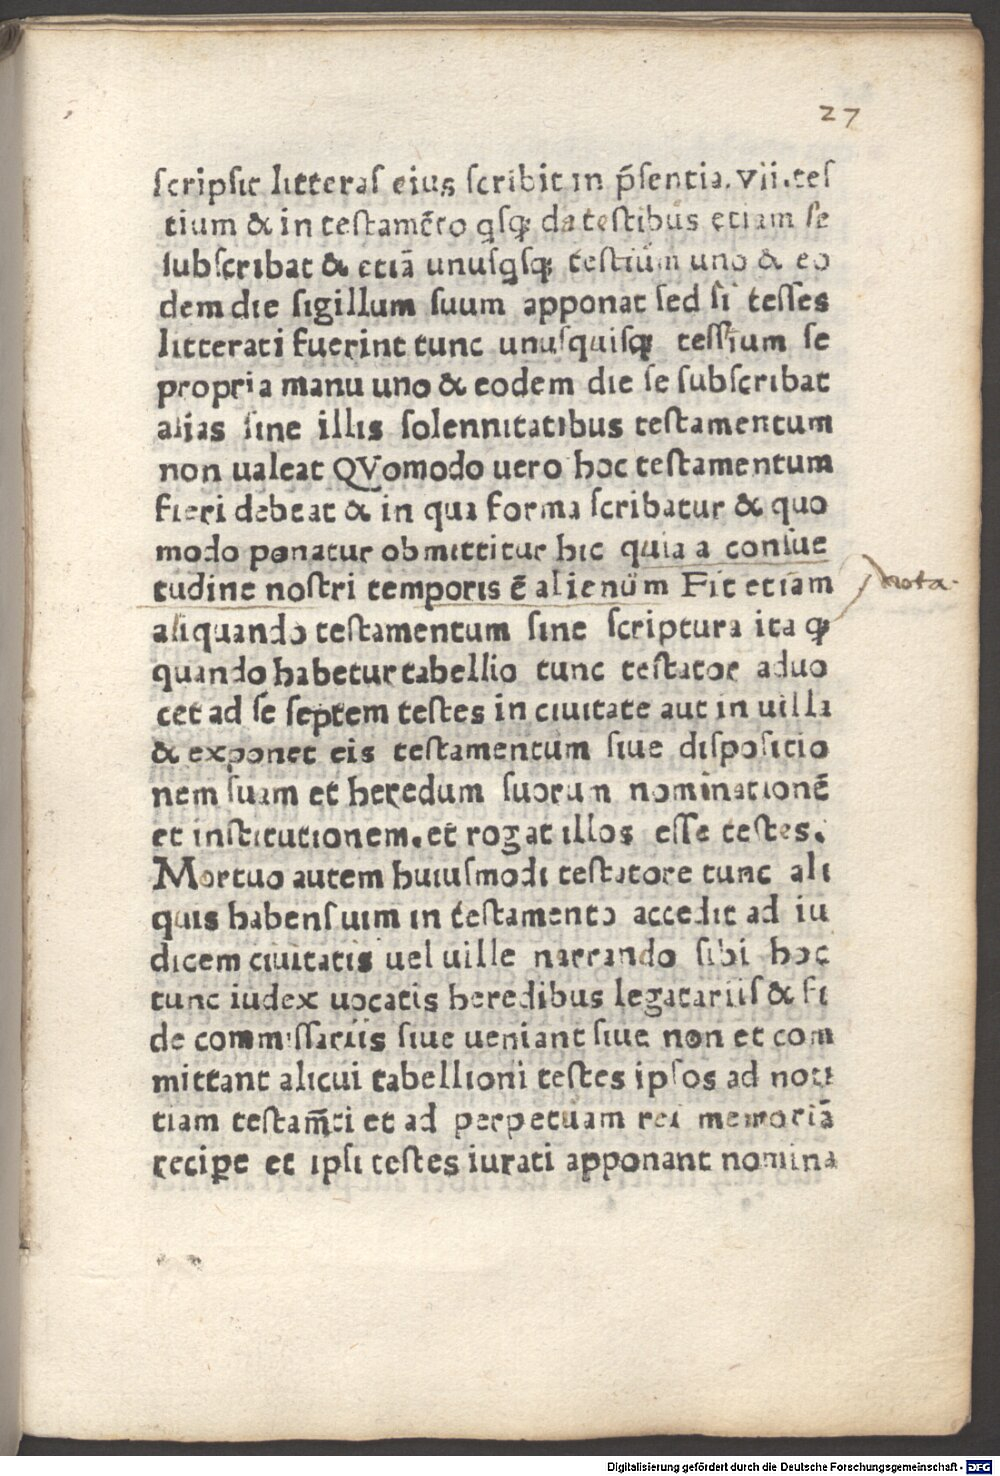 27
ſcripſit litteraſ eiuꝫ ſcribit in p̄ſentia. vii. teſ
tium & in teſtamēto qſqꝫ da teſtibus etiam ſe
ſubſcribat & etiā unuſqſqꝫ teſtium uno & eo
dem die ſigillum ſuum apponat ſed ſi teſſes
litterati fuerint tunc unuſquiſqꝫ teſſium ſe
propria manu uno & eodem die ſe ſubſcribat
alias ſine illis ſolennitatibus teſtamentum
non ualeat QVomodo uero hoc teſtamentum
fieri debeat & in qua forma ſcribatur & quo
modo ponatur obmittitur hic quia a conſue
tudine noſtri temporis ē alienum Fit etiam
nota
aliquando teſtamentum ſine ſcriptura ita qꝫ
quando habetur tabellio tunc teſtator aduo
cet ad ſe ſeptem teſtes in ciuitate aut in uilla
& exponet eis teſtamentum ſiue diſpoſitio
nem ſuam et heredum ſuorum nominationē
et inſtitutionem. et rogat illos eſſe teſtes.
Mortuo autem huiuſmodi teſtatore tunc ali
quis habenſ uim in teſtamento accedit ad iu
dicem ciuitatis uel uille narrando ſibi hoc
tunc iudex uocatis heredibus legatariiſ & fi
de commiſſariis ſiue ueniant ſiue non et com
mittant alicui tabellioni teſtes ipſos ad noti
tiam teſtam̄ti et ad perpetuam rei memoriā
reciꝑe et ipſi teſtes iurati apponant nomina
Digitalisierung gefördert durch die Deutsche Forschungsgemeinschaft - DFG